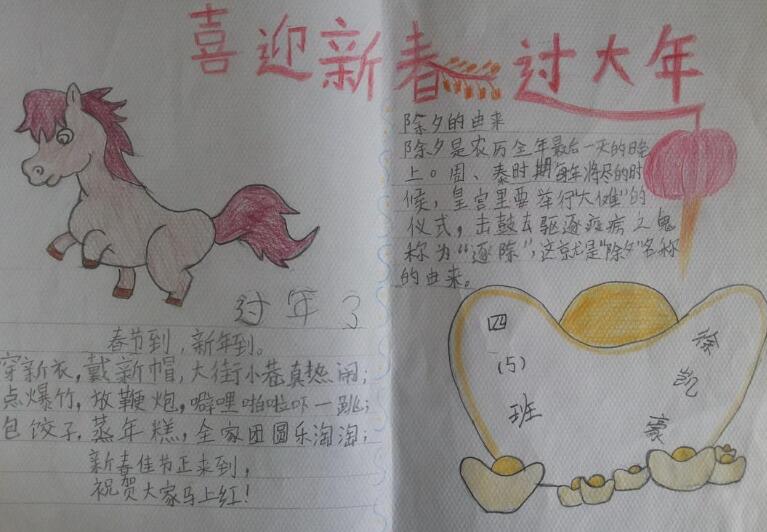 喜迎新春 过大年
过年了
春节到，新年到。
穿新衣，戴新帽，大街小巷真热闹；
点爆竹，放鞭炮，噼哩啪啦吓一跳；
包饺子，蒸年糕，全家团圆乐淘淘；
新春佳节正来到，
祝贺大家马上红！
除夕的由来
除夕是农历全年最后一天的晚
上。周、秦时期每年将尽的时
候，皇宫里要举行“大傩”的
仪式，击鼓去驱逐疫病之鬼
称为“逐除”，这就是“除夕”名称
的由来。
四（5）班
徐凯豪